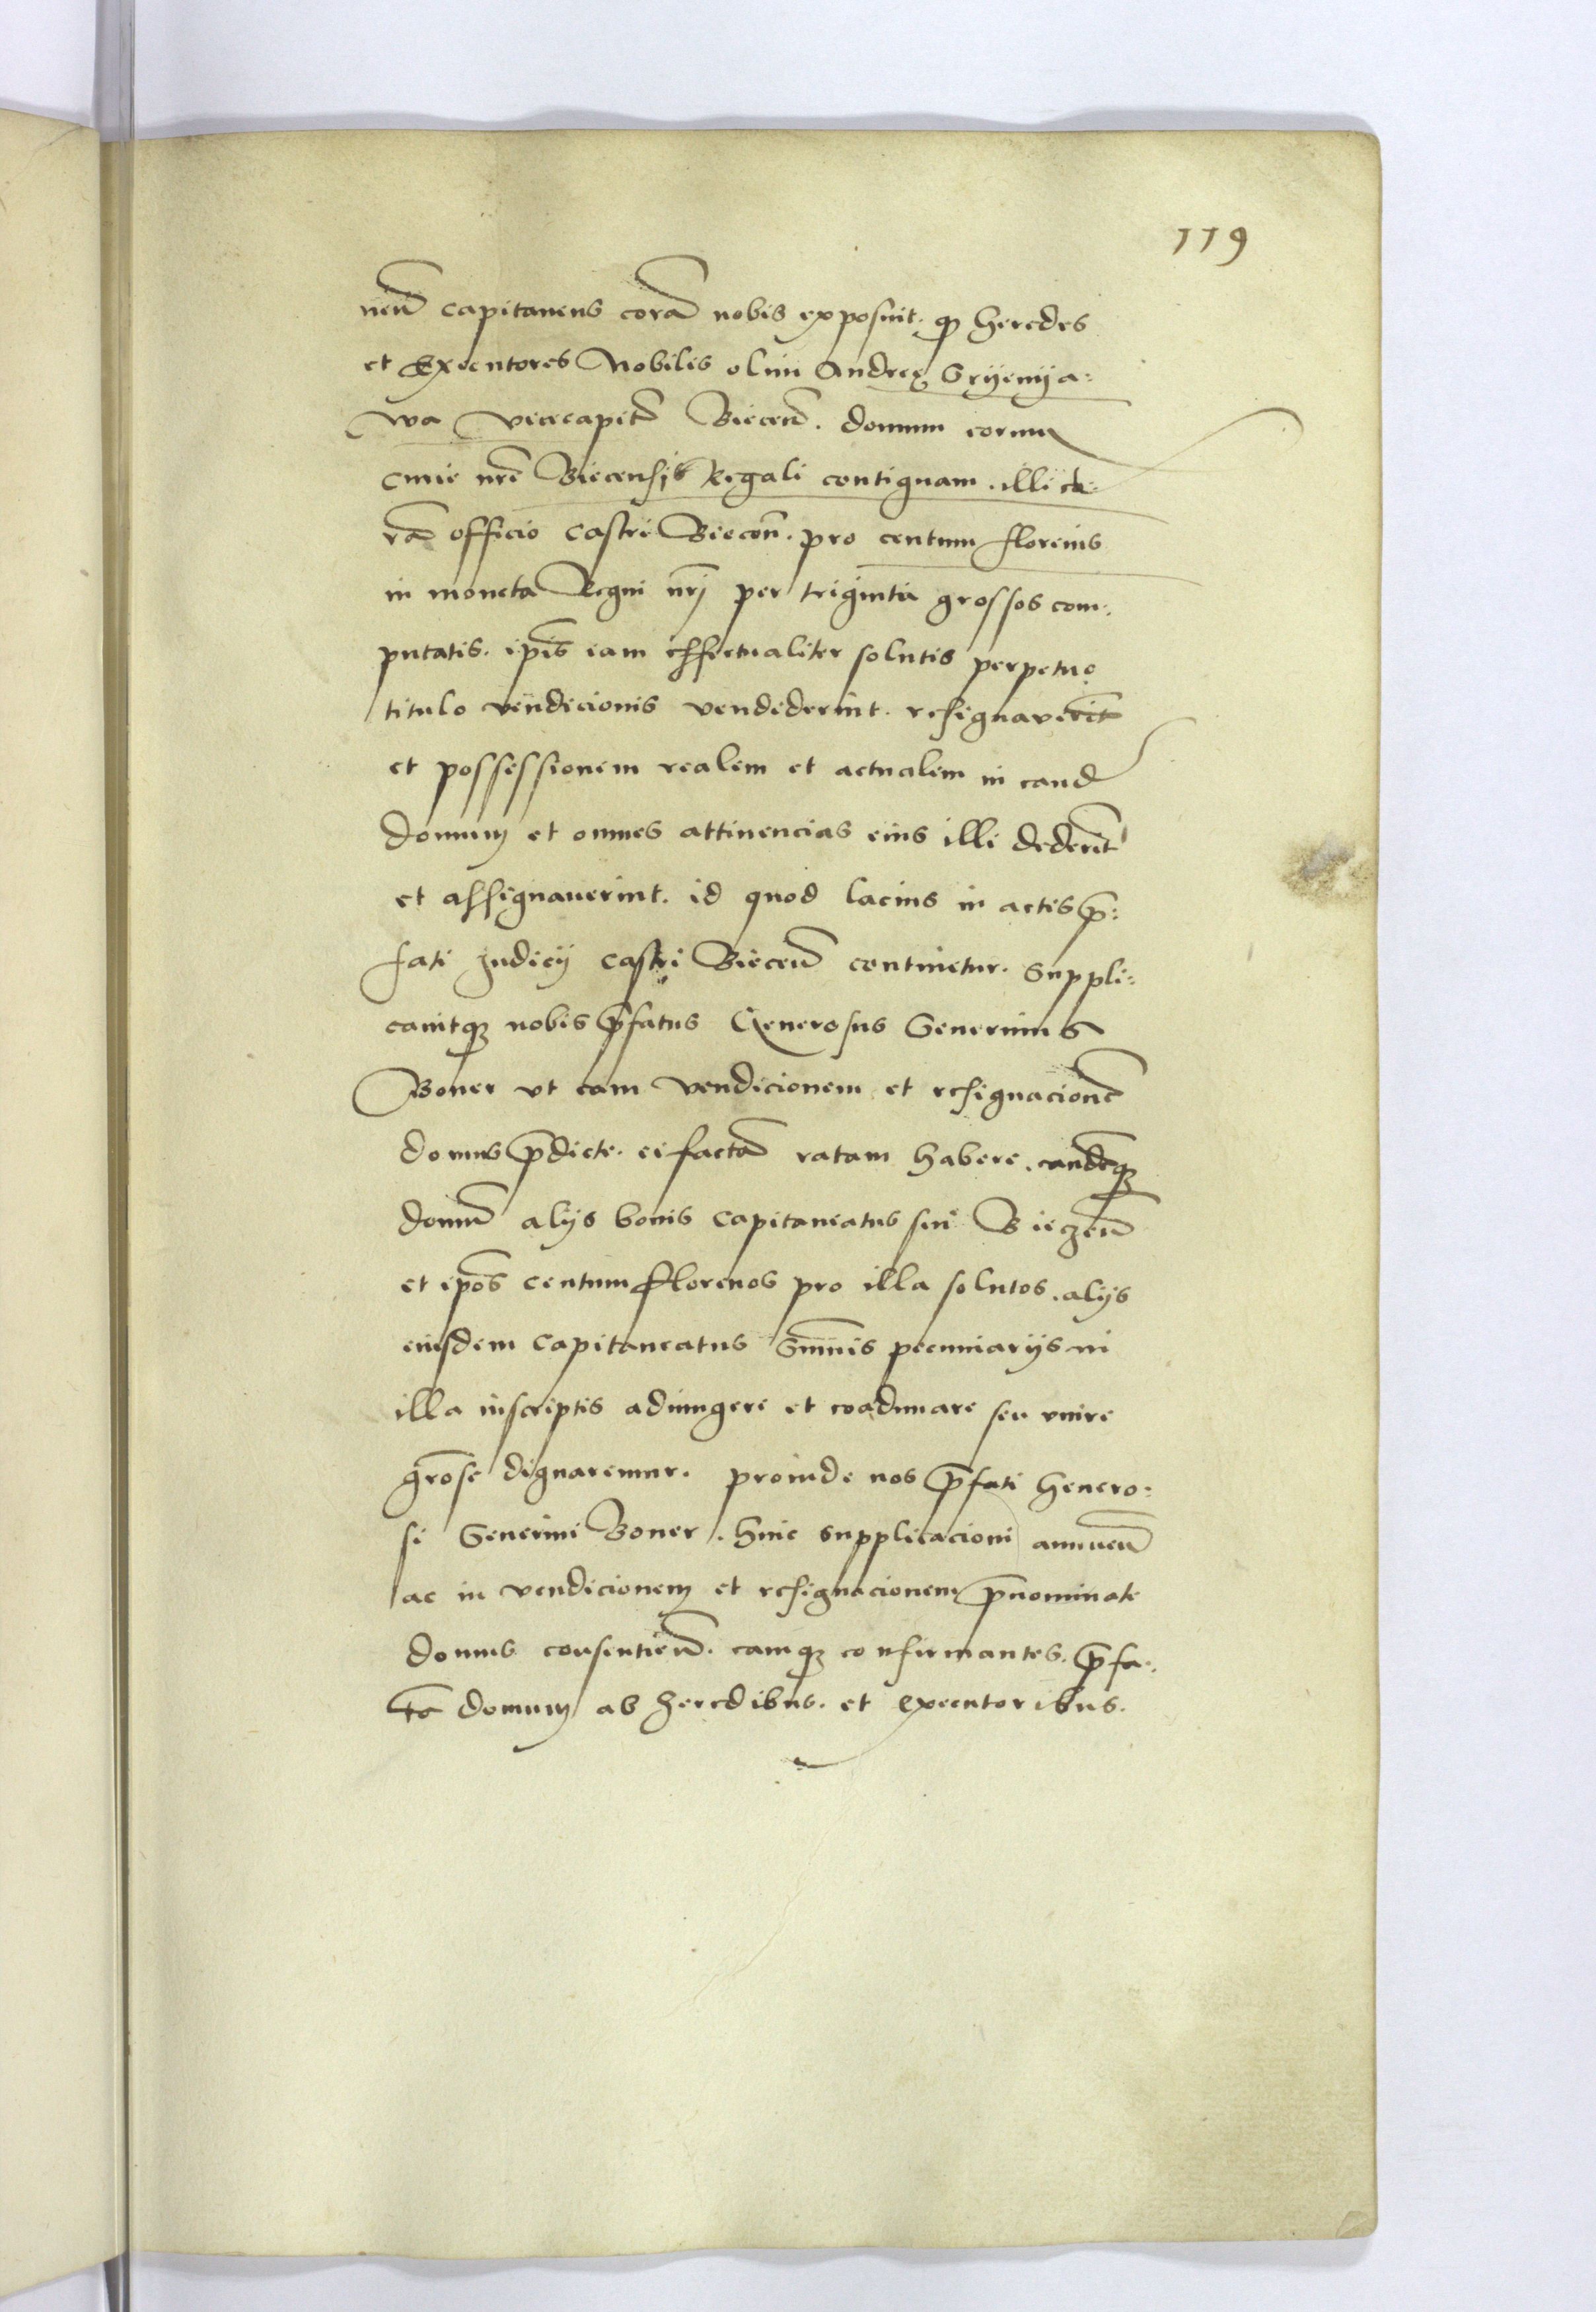 119
neñ capitaneus corã nobis exposuit. q heredes
et Executores Nobilis olim Andreę Sryenya:
wa vicecapit Biecen̄. domum eorum
curie nr̄e Biecensi Regali contiguam. illi co
rã officio castri Biecen̄. pro centum florenis
in moneta Regni nr̄j per triginta grossos com:
putatis. ip̄is iam effectualiter solutis perpetuo
titulo vendicionis vendiderint. resignaverint
et possessionem realem et actualem in eand
domum et omnes attinencias eius illi dederint
et assignauerint. id quod lacius in actis p̄:
fati Judicij castri Biecen̄ continetur. Suppli:
cauitq nobis p̄fatus Generosus Severinus
Boner vt eam vendicionem et resignacionē
domus p̄dicte. ei factã ratam habere. eandēq
domū alijs bonis Capitaneatus sui Bieczen̄
et ip̄os centum florenos pro illa solutos. alijs
eiusdem Capitaneatus sum̄is pecuniarijs in
illa inscriptis adiungere et coadunare seu vnire
gr̄ose dignaremur. proinde nos p̄fati Genero:
si Severini Boner. huic supplicacioni annuen̄
ac in vendicionem et resignacionem p̄nominate
domus consentien̄. eamq confirmantes. p̄fa:
tã domum ab heredibus. et executoribus.